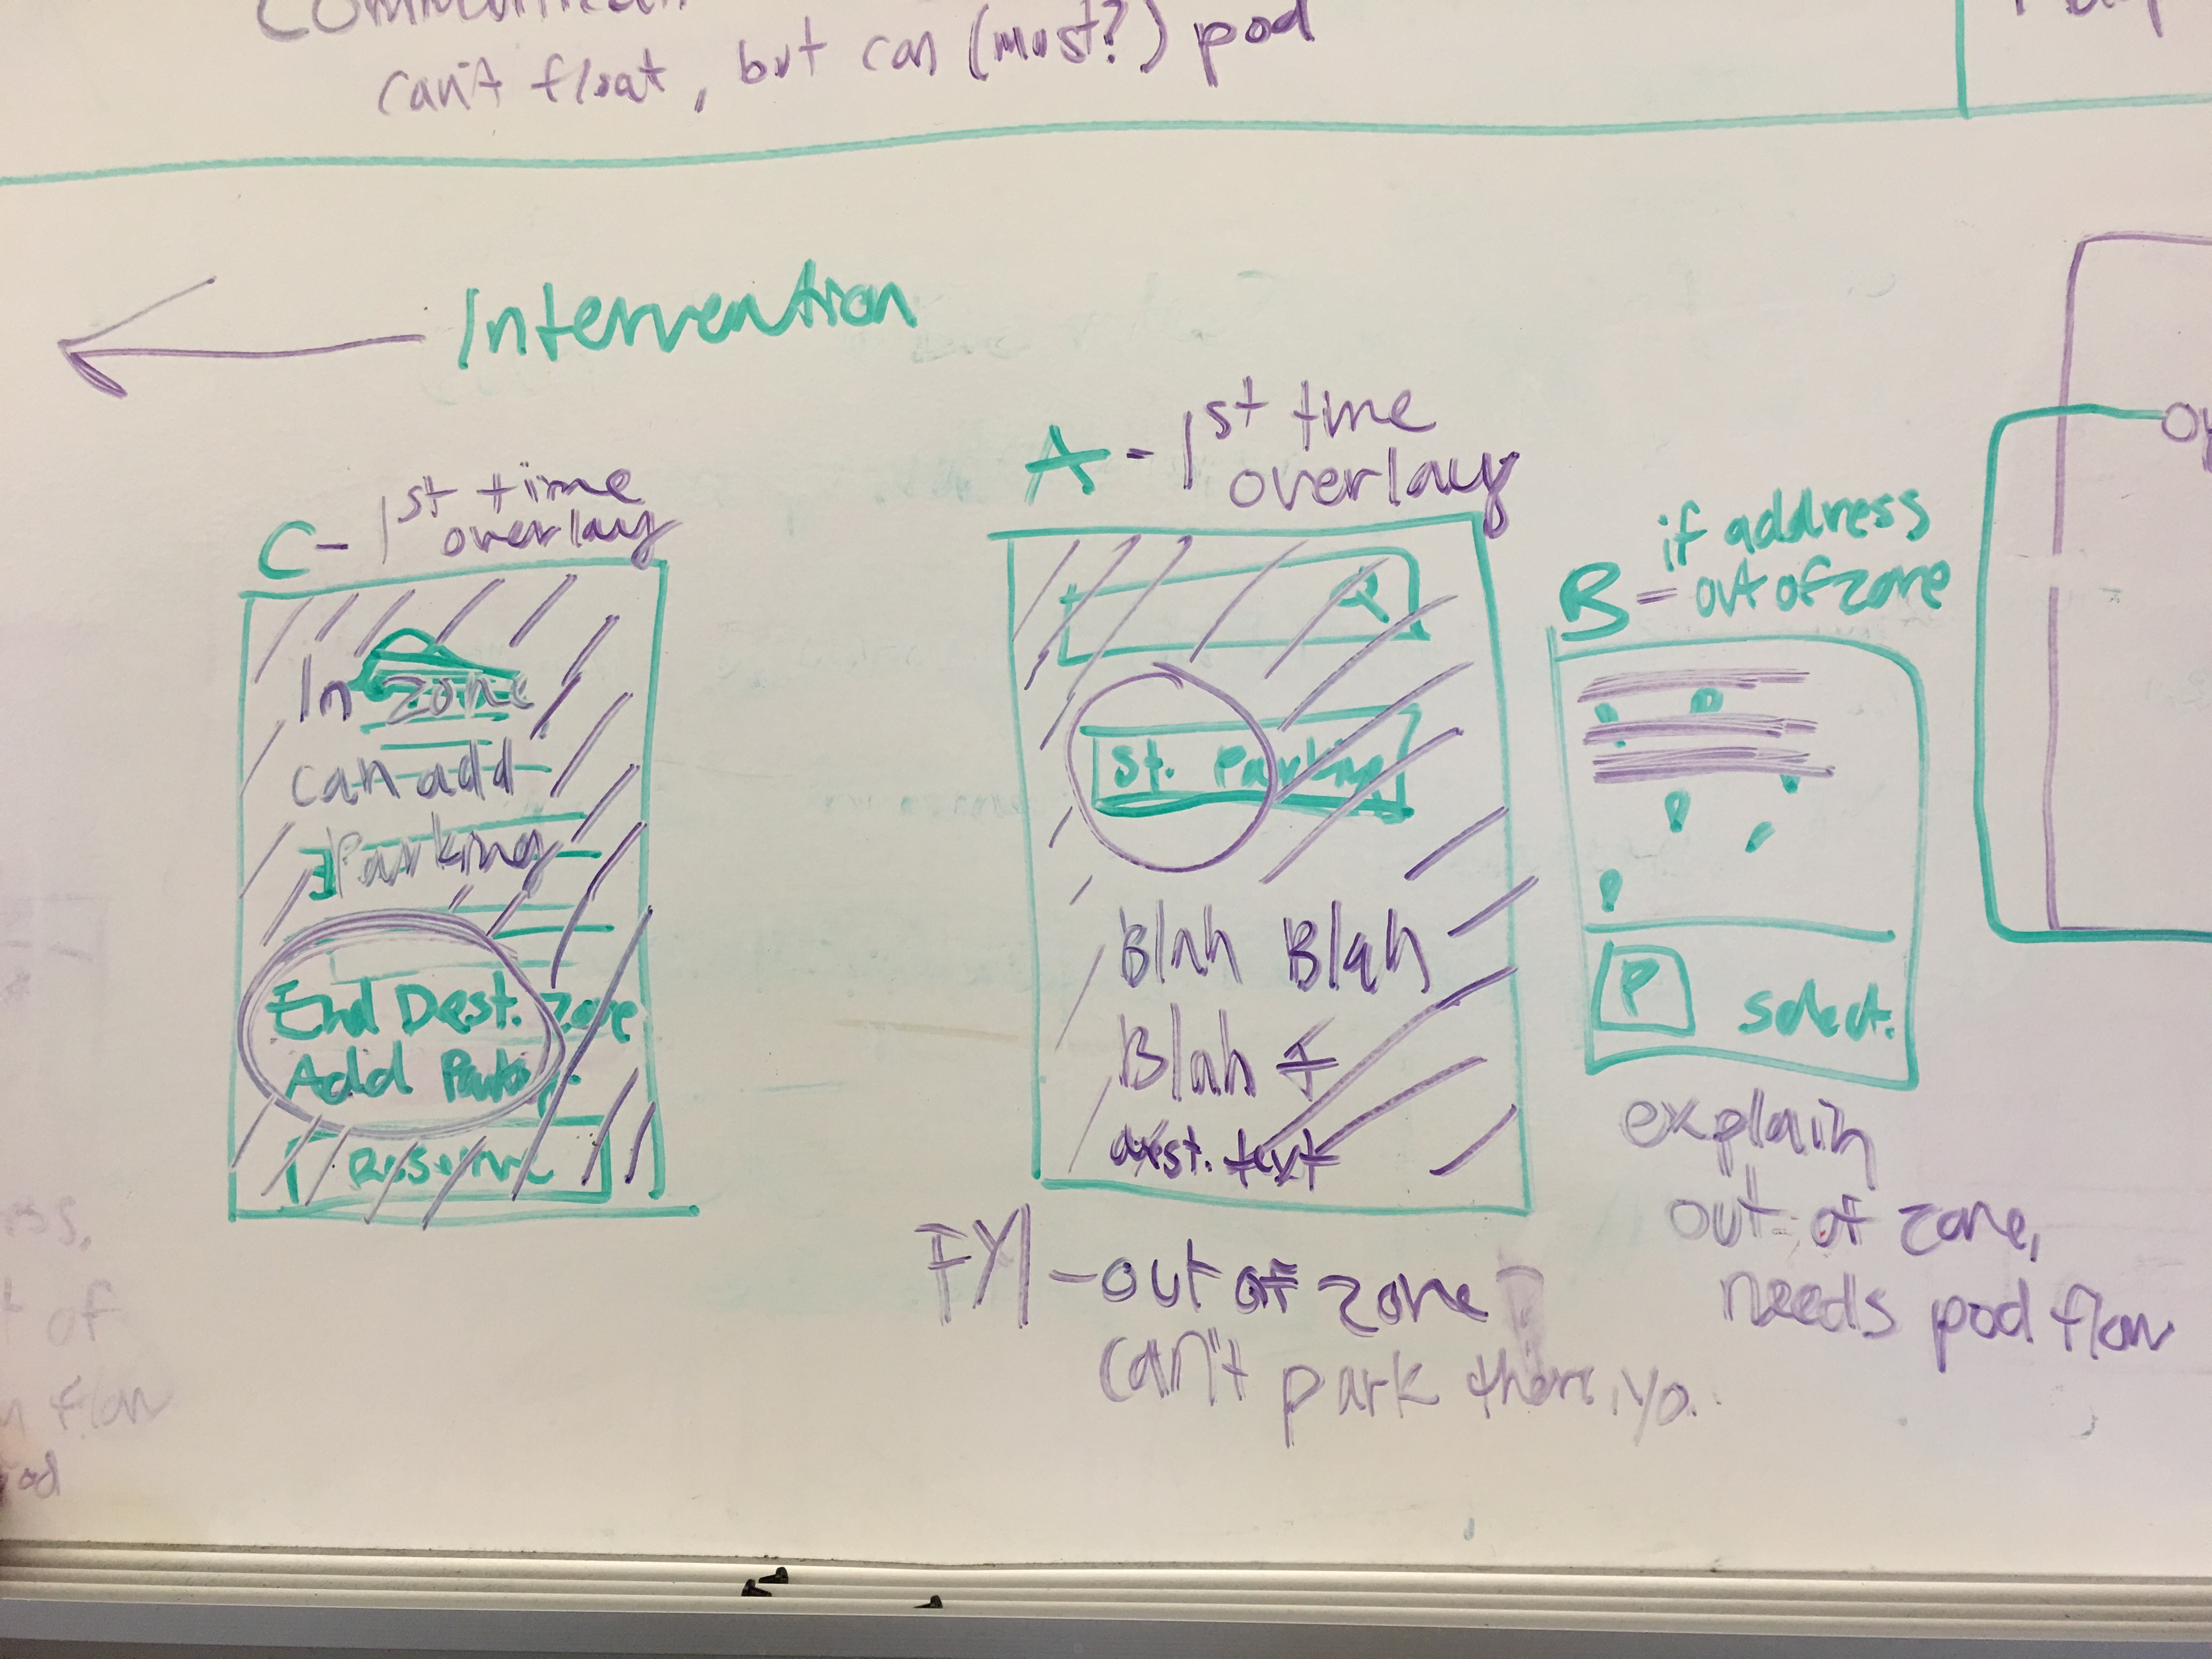 can't float, but can (must?) pod
Intervention
C - 1st time
overlay
In zone
can add
Parking
End Dest. zone
Add Parking
Reserve
A - 1st time
overlay
St. Parking
Blah Blah
Blah &
dest. text
FYI - out of zone
can't park there, yo.
B - if address
out of zone
P select.
explain
out of zone,
needs pod flow
flow